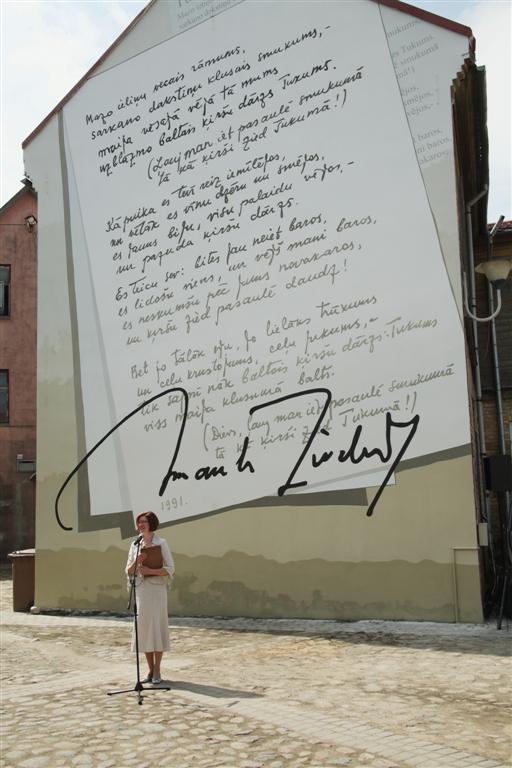 Mazo ieliņu vecais rāmums,
sarkano dakstiņu klusais smukums,-
maija vēsajā vējā tā mums
uzblāzmo baltais ķiršu dārzs Tukums.
(Ļauj man iet pasaulē smukumā
tā kā ķirši zied Tukumā!)
Kā puika es tevī reiz iemīlējos,
un vēlāk es vīnu dzēru un smējos,
es jauns biju, višu palaidu vējos,-
un pazuda ķiršu dārzs.
Es teicu sev: bites jau neiet baros,
es lidošu viens, un vējš mani baros,
es neskumšu pēc jums novakaros,
un ķirši zied pasaulē daudz!
Bet jo tālāk eju, jo lielāks trūkums
un ceļu krustojums, ceļu jukums,-
tik sapnī nāk baltais ķiršu dārzs: Tukums
viss maija klusumā balts.
(Dievs, ļauj man iet pasaulē smukumā
tā kā ķirši zied Tukumā!)
1991.
Imants Ziedonis